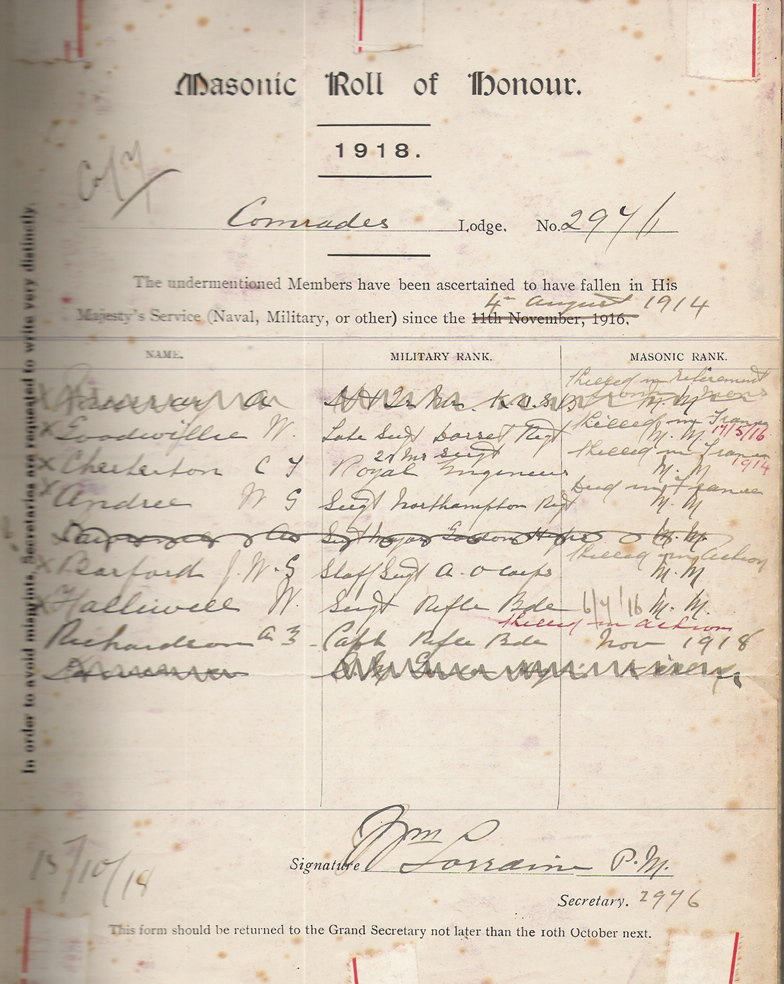 Masonic Roll of Honour.
1918.
Copy
Comrades Lodge. No. 2976
The undermentioned Members have been ascertained to have fallen in His
4th August 1914
Majesty's Service (Naval, Military, or other) since the 11th November, 1916.
In order to avoid misprints, Secretaries are requested to write very distinctly.
NAME. MILITARY RANK. MASONIC RANK.
Killed in Retirement
X A K.O.S.B M.M
Killed in France
X Goodwillie W. Late Sergt Dorset Regt M.M 17/5/16
2nd Mr Sergt Killed in France
X Chesterton C F Royal Engineers M.M 1914
Died in France
X Andree W G Sergt Northampton Regt M.M
Sergt Major Gordon M.M.
Killed in Action
X Barford J. W. G Staff Sergt A. O Corps M.M
X Halliwell W. Sergt Rifle Bde 6/4/16 M.M.
Killed in action
Richardson A 3 Capt Rifle Bde Nov 1918
Signature Wm S Lorraine P.M.
Secretary. 2976
15/10/18
This form should be returned to the Grand Secretary not later than the 10th October next.